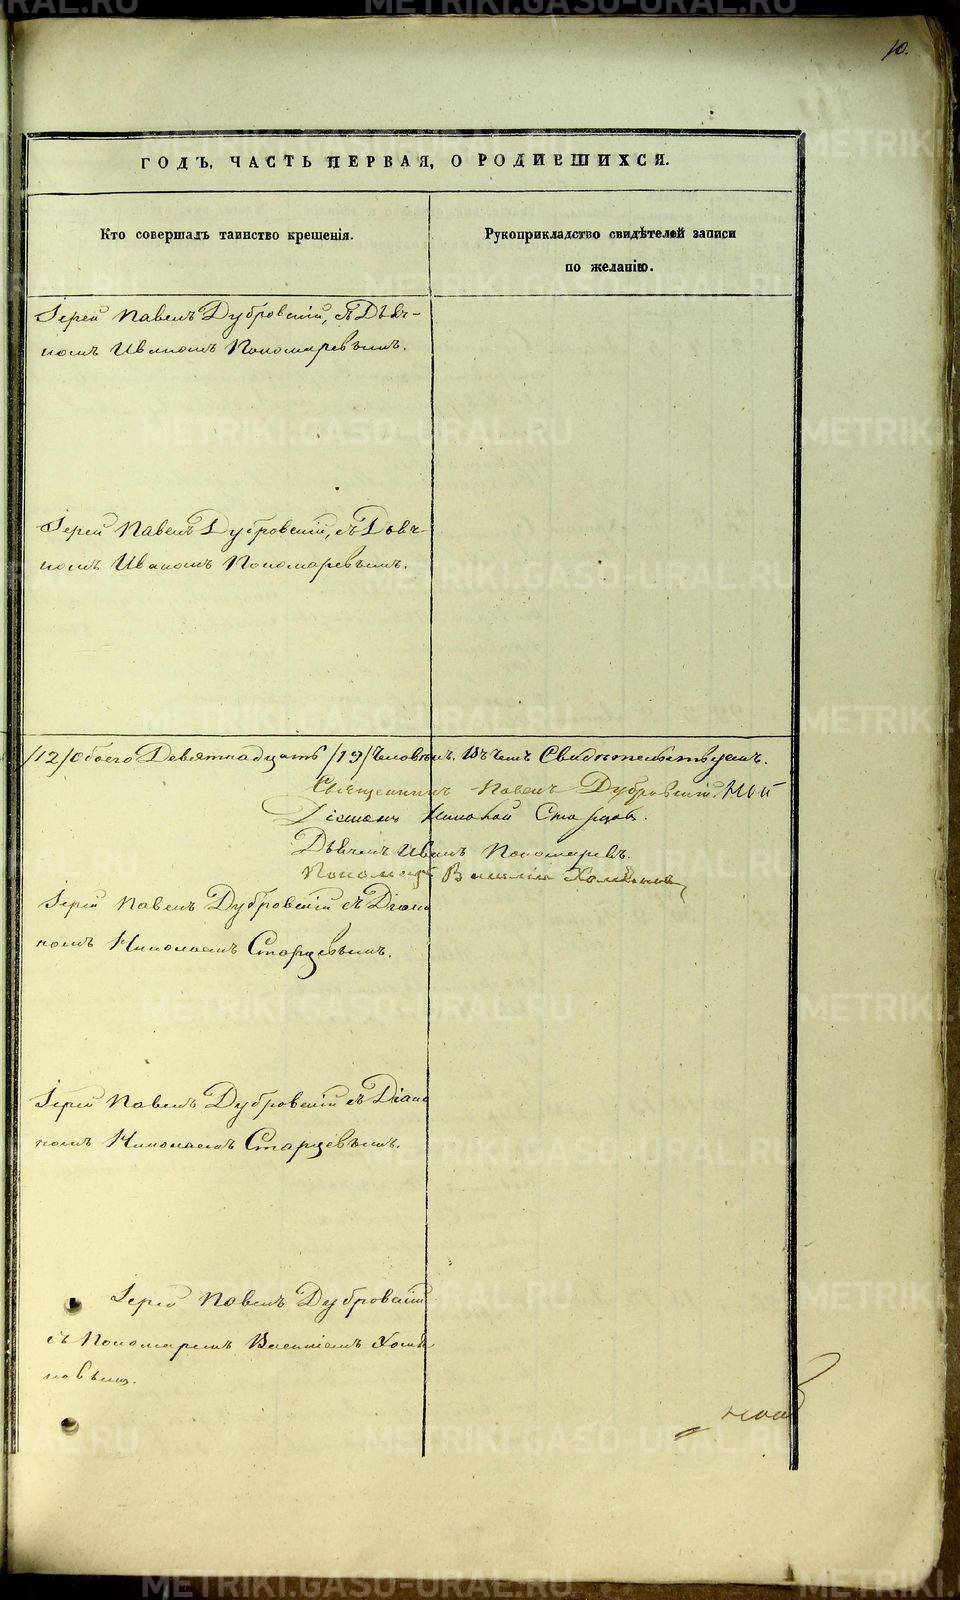 10.
ГОДЪ, ЧАСТЬ ПЕРВАЯ, О РОДИВШИХСЯ.
Кто совершалъ таинство крещенія.
Рукоприкладство свидѣтелей записи
по желанію.
Іерей Павелъ Дубровскій, съ Дьяч-
комъ Иваномъ Пономаревымъ.
Іерей Павелъ Дубровскій, съ Дьяч-
комъ Иваномъ Пономаревымъ.
/12/ Обоего Девятнадцать /19/ Человѣкъ. Въ чемъ Свидѣтельствуемъ.
Священникъ Павелъ Дубровскій.
Діаконъ Николай Старцовъ.
Дьячекъ Иванъ Пономаревъ.
Пономарь Василій
Іерей Павелъ Дубровскій съ Діако
номъ Николаемъ Старцевымъ.
Іерей Павелъ Дубровскій съ Діако
номъ Николаемъ Старцевымъ.
Іерей Павелъ Дубровскій
съ Пономаремъ Василіемъ
METRIKI.GASO-URAL.RU